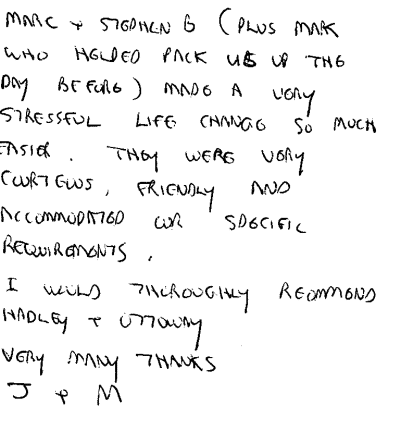 MARC + STEPHEN G (PLUS MARK
WHO HELPED PACK US UP THE
DAY BEFORE) MADE A VERY
STRESSFUL LIFE CHANGE SO MUCH
EASIER. THEY WERE VERY
COURTEOUS, FRIENDLY AND
ACCOMMODATED OUR SPECIFIC
REQUIREMENTS.
I WOULD THOROUGHLY RECOMMEND
HADLEY + OTTOWAY
VERY MANY THANKS
J + M